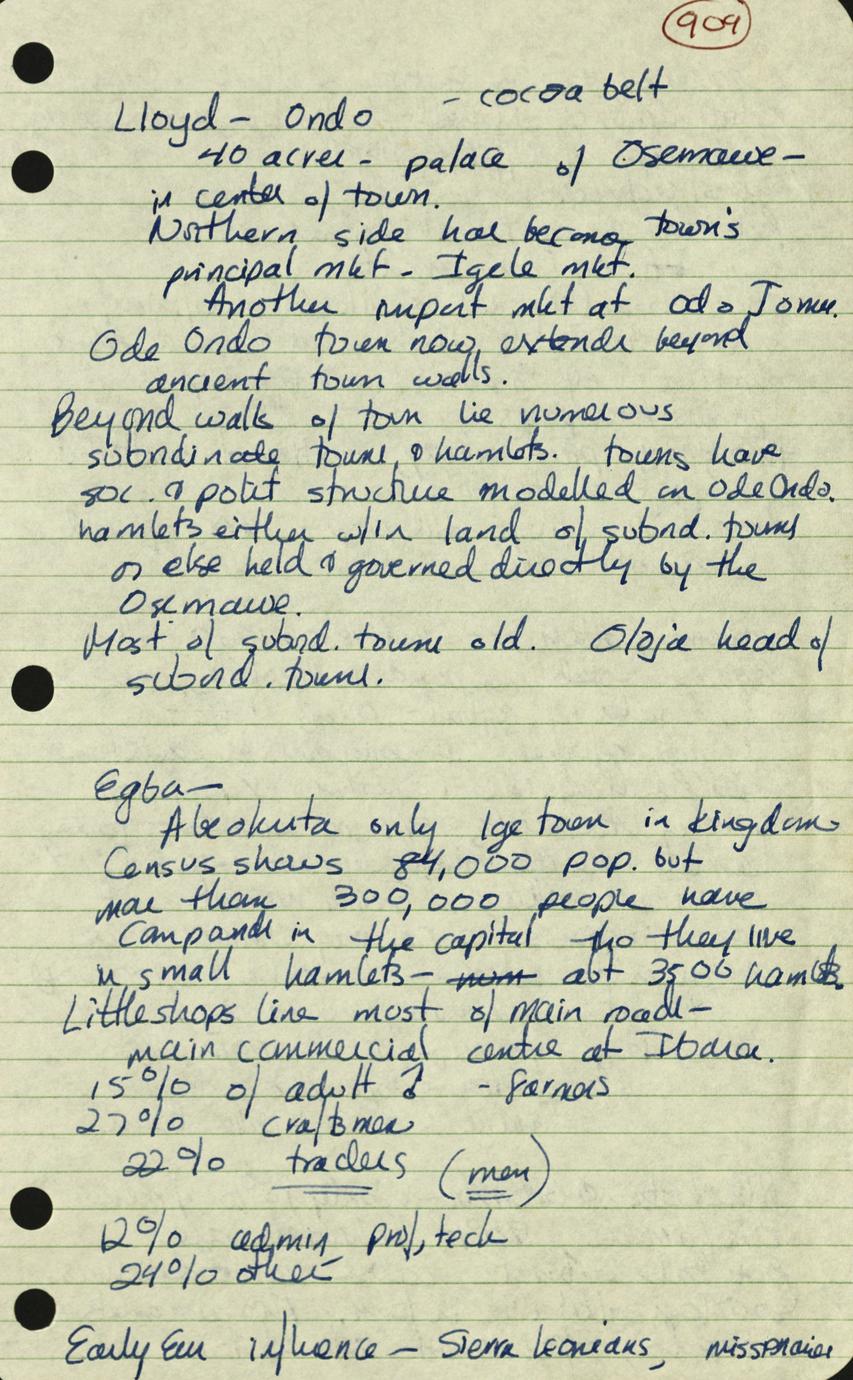 909
Lloyd - Ondo - cocoa belt
40 acres - palace of Osemawe -
in center of town.
Northern side has become town's
principal mkt - Igele mkt.
Another import mkt at Odo
Ode Ondo town now extends beyond
ancient town walls.
Beyond walls of town lie numerous
subordinate towns & hamlets. towns have
soc. & polit structure modelled on Ode Ondo.
hamlets either w/in land of subord. towns
or else held & governed directly by the
Osemawe.
Most of subord. towns old. Oloja head of
subord. towns.
Egba -
Abeokuta only lge town in kingdom
Census shows 84,000 pop. but
more than 300,000 people have
compounds in the capital tho they live
in small hamlets - abt 3500 hamlets.
Little shops line most of main roads -
main commercial centre at Ibara.
15% of adult ♂ - farmers
27% craftsmen
22% traders (men)
12% admin, prof, tech
24% other
Early Eur influence - Sierra Leonians, missionaries